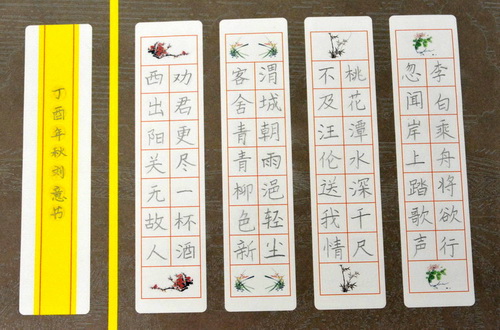 李白乘舟将欲行
忽闻岸上踏歌声
桃花潭水深千尺
不及汪伦送我情
渭城朝雨浥轻尘
客舍青青柳色新
劝君更尽一杯酒
西出阳关无故人
丁酉年秋